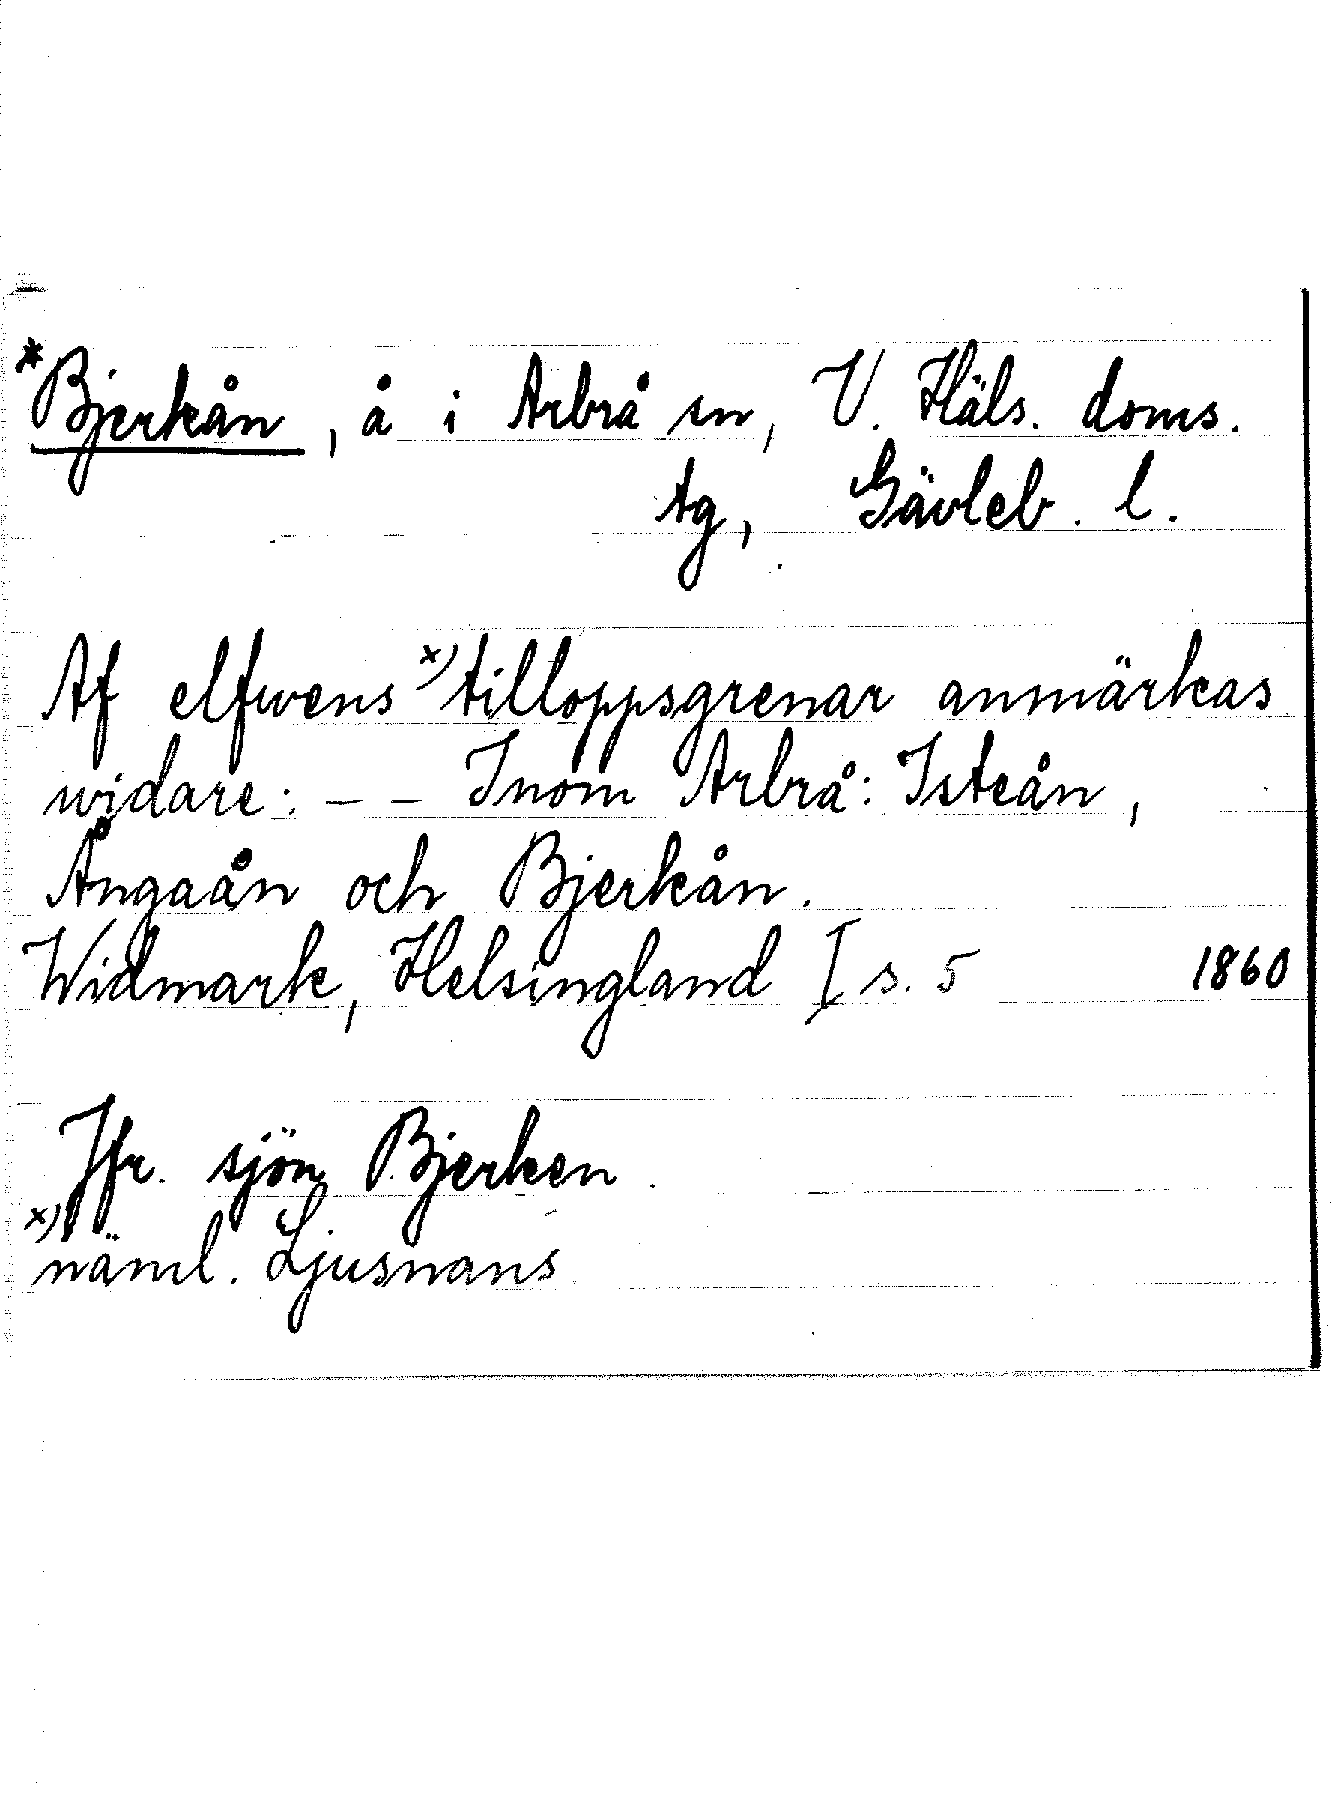 *Bjerkån, å i Arbrå sn, V. Häls. doms.
tg, Gävleb. l.
Af elfwens x) tilloppsgrenar anmärkas
widare: – – Inom Arbrå: Isteån,
Ångaån och Bjerkån.
Widmark, Helsingland I s. 5 1860
Jfr. sjön Bjerken.
x) näml. Ljusnans